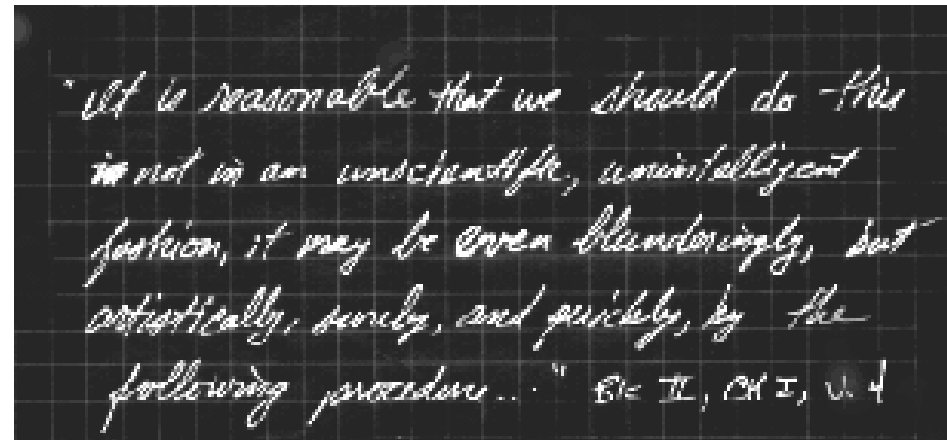 "It is reasonable that we should do this
not in an unscientific, unintelligent
fashion, it may be even blunderingly, but
artistically, surely, and quickly, by the
following procedure..." BK II, CH I, V. 4